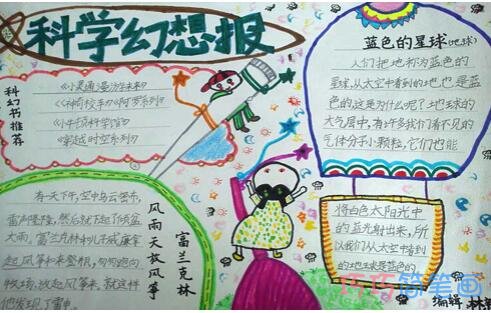 科学幻想报
科幻书推荐
《小灵通漫游未来》
《神奇校车》《阿罗系列》
《小牛顿科学馆》
《穿越时空系列》
蓝色的星球(地球)
人们把地称为蓝色的
星球,从太空中看到的地也是蓝
色的,这是为什么呢?地球的
大气层中,有许多我们看不见的
气体分子小颗粒,它们也能
将白色太阳光中
的蓝光射出来,所
以我们从太空中看到
的地球是蓝色的
有一天下午,空中乌云密布,
雷声隆隆,然后就下起了倾盆
大雨。富兰克林和儿子威廉拿
起风筝和来登瓶,匆匆跑向
牧场,放起风筝来,就这样
他发现了雷电
风雨天放风筝
富兰克林
编辑:林
巧巧简笔画